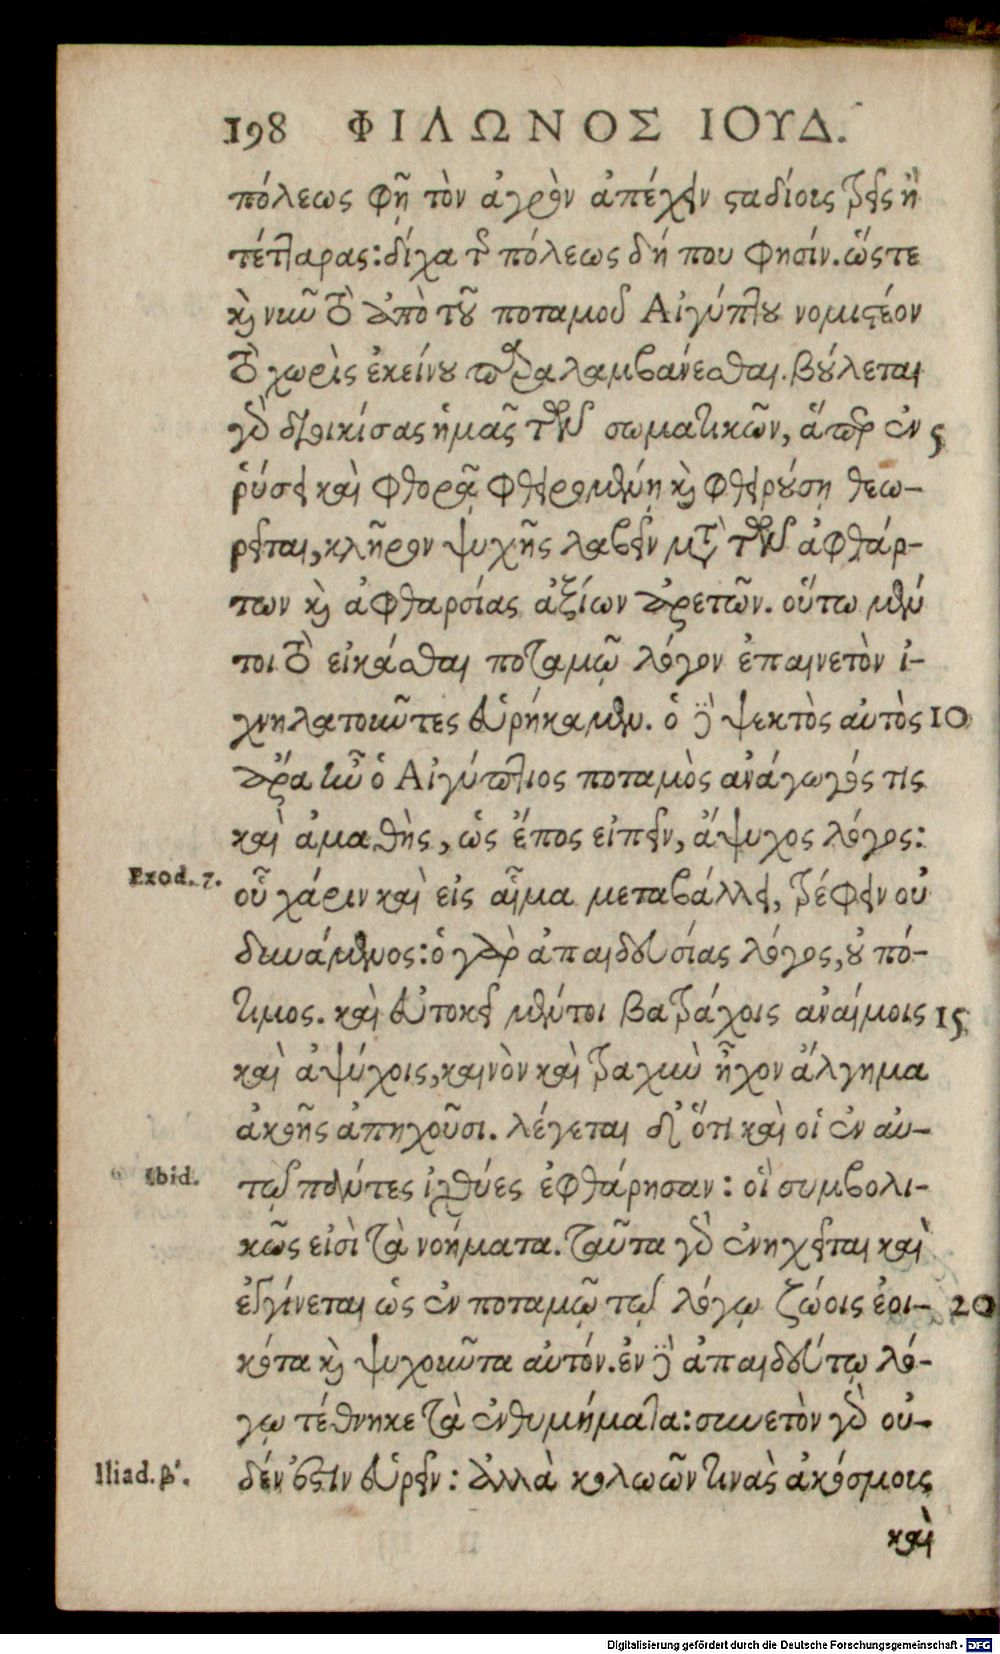 198 ΦΙΛΩΝΟΣ ΙΟΥΔ.
πόλεως φῇ τὸν ἀγρὸν ἀπέχειν σταδίοις τρεῖς ἢ
τέτταρας: δίχα τῆς πόλεως δή που φησίν. ὥστε
καὶ νῦν τὸ ἀπὸ τοῦ ποταμοῦ Αἰγύπτου νομιστέον
τὸ χωρὶς ἐκείνου παραλαμβάνεσθαι. βούλεται
γὰρ διοικίσας ἡμᾶς τῶν σωματικῶν, ἅπερ ἐν 5
ῥύσει καὶ φθορᾷ φθειρομένῃ καὶ φθειρούσῃ θεω-
ρεῖται, κλῆρον ψυχῆς λαβεῖν μετὰ τῶν ἀφθάρ-
των καὶ ἀφθαρσίας ἀξίων ἀρετῶν. οὕτω μέν
τοι τὸ εἰκάσθαι ποταμῷ λόγον ἐπαινετὸν ἰ-
χνηλατοῦντες εὑρήκαμεν. ὁ δὲ ψεκτὸς αὐτὸς 10
ἄρα ἦν ὁ Αἰγύπτιος ποταμὸς ἀνάγωγός τις
καὶ ἀμαθὴς, ὡς ἔπος εἰπεῖν, ἄψυχος λόγος:
Exod. 7. οὗ χάριν καὶ εἰς αἷμα μεταβάλλει, τρέφειν οὐ
δυνάμενος: ὁ γὰρ ἀπαιδευσίας λόγος, οὐ πό-
τιμος. καὶ εὐτοκεῖ μέντοι βατράχοις ἀναίμοις 15
καὶ ἀψύχοις, καινὸν καὶ τραχὺ ἦχον ἄλγημα
ἀκοῆς ἀπηχοῦσι. λέγεται δ' ὅτι καὶ οἱ ἐν αὐ-
Ibid. τῷ πάντες ἰχθύες ἐφθάρησαν: οἳ συμβολι-
κῶς εἰσὶ τὰ νοήματα. ταῦτα γὰρ ἐνήχεται καὶ
ἐγγίνεται ὡς ἐν ποταμῷ τῷ λόγῳ ζώοις ἐοι- 20
κότα καὶ ψυχοῦντα αὐτόν. ἐν δὲ ἀπαιδεύτῳ λό-
γῳ τέθνηκε τὰ ἐνθυμήματα: συνετὸν γὰρ οὐ-
Iliad. β'. δέν ἐστιν εὑρεῖν: ἀλλὰ κολωῶν τινὰς ἀκόσμοις
καὶ
Digitalisierung gefördert durch die Deutsche Forschungsgemeinschaft - DFG